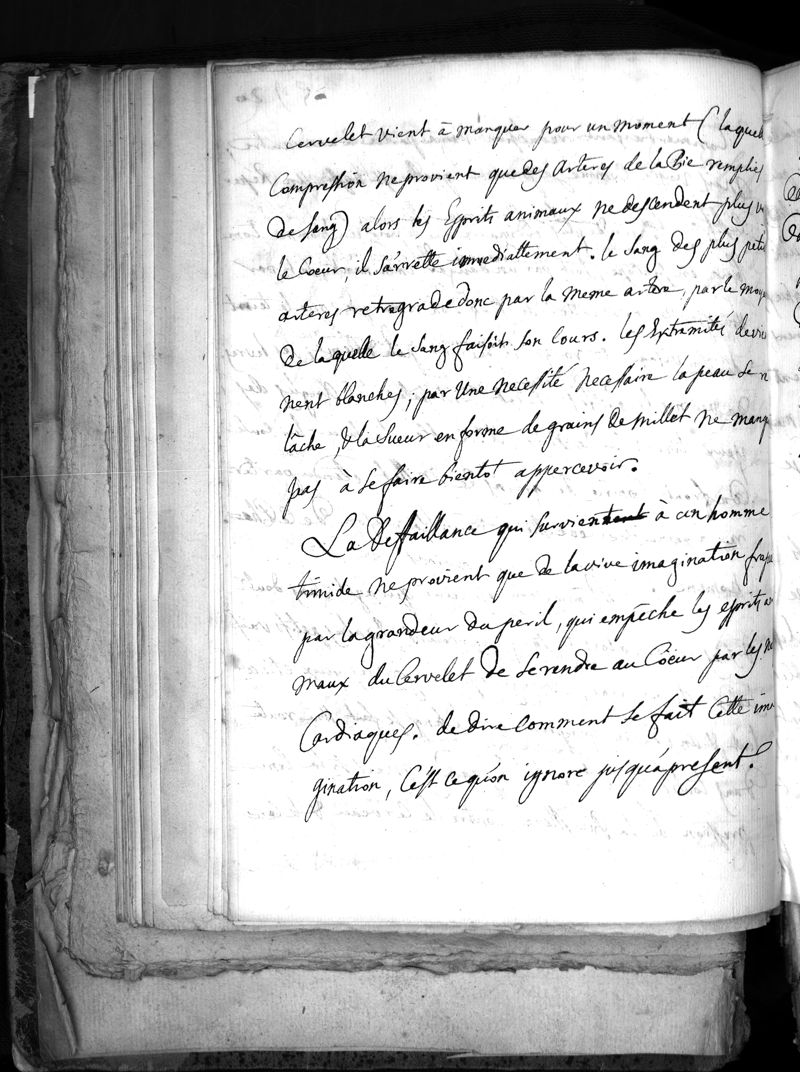 Cervelet vient à manquer pour un moment (laquel
Compression ne provient que des Arteres de la Pie remplies
de sang) alors les Esprits animaux ne descendent plus v
le Coeur, il s'arrette immediattement. le sang des plus petit
arteres retrograde donc par la meme artere, par le moye
de laquelle le sang faisoit son Cours. les Extremités devie
nent blanches; par une necessité necessaire la peau se r
lâche, & la sueur en forme de grains de millet ne manq
pas à se faire bientot appercevoir.
La Deffaillance qui survient à un homme
timide ne provient que de la vive imagination frapp
par la grandeur du peril, qui empêche les esprits a
maux du Cervelet de se rendre au Coeur par les n
Cardiaques. de dire comment se fait Cette im
gination, C'est ce qu'on ignore jusqu'à present.